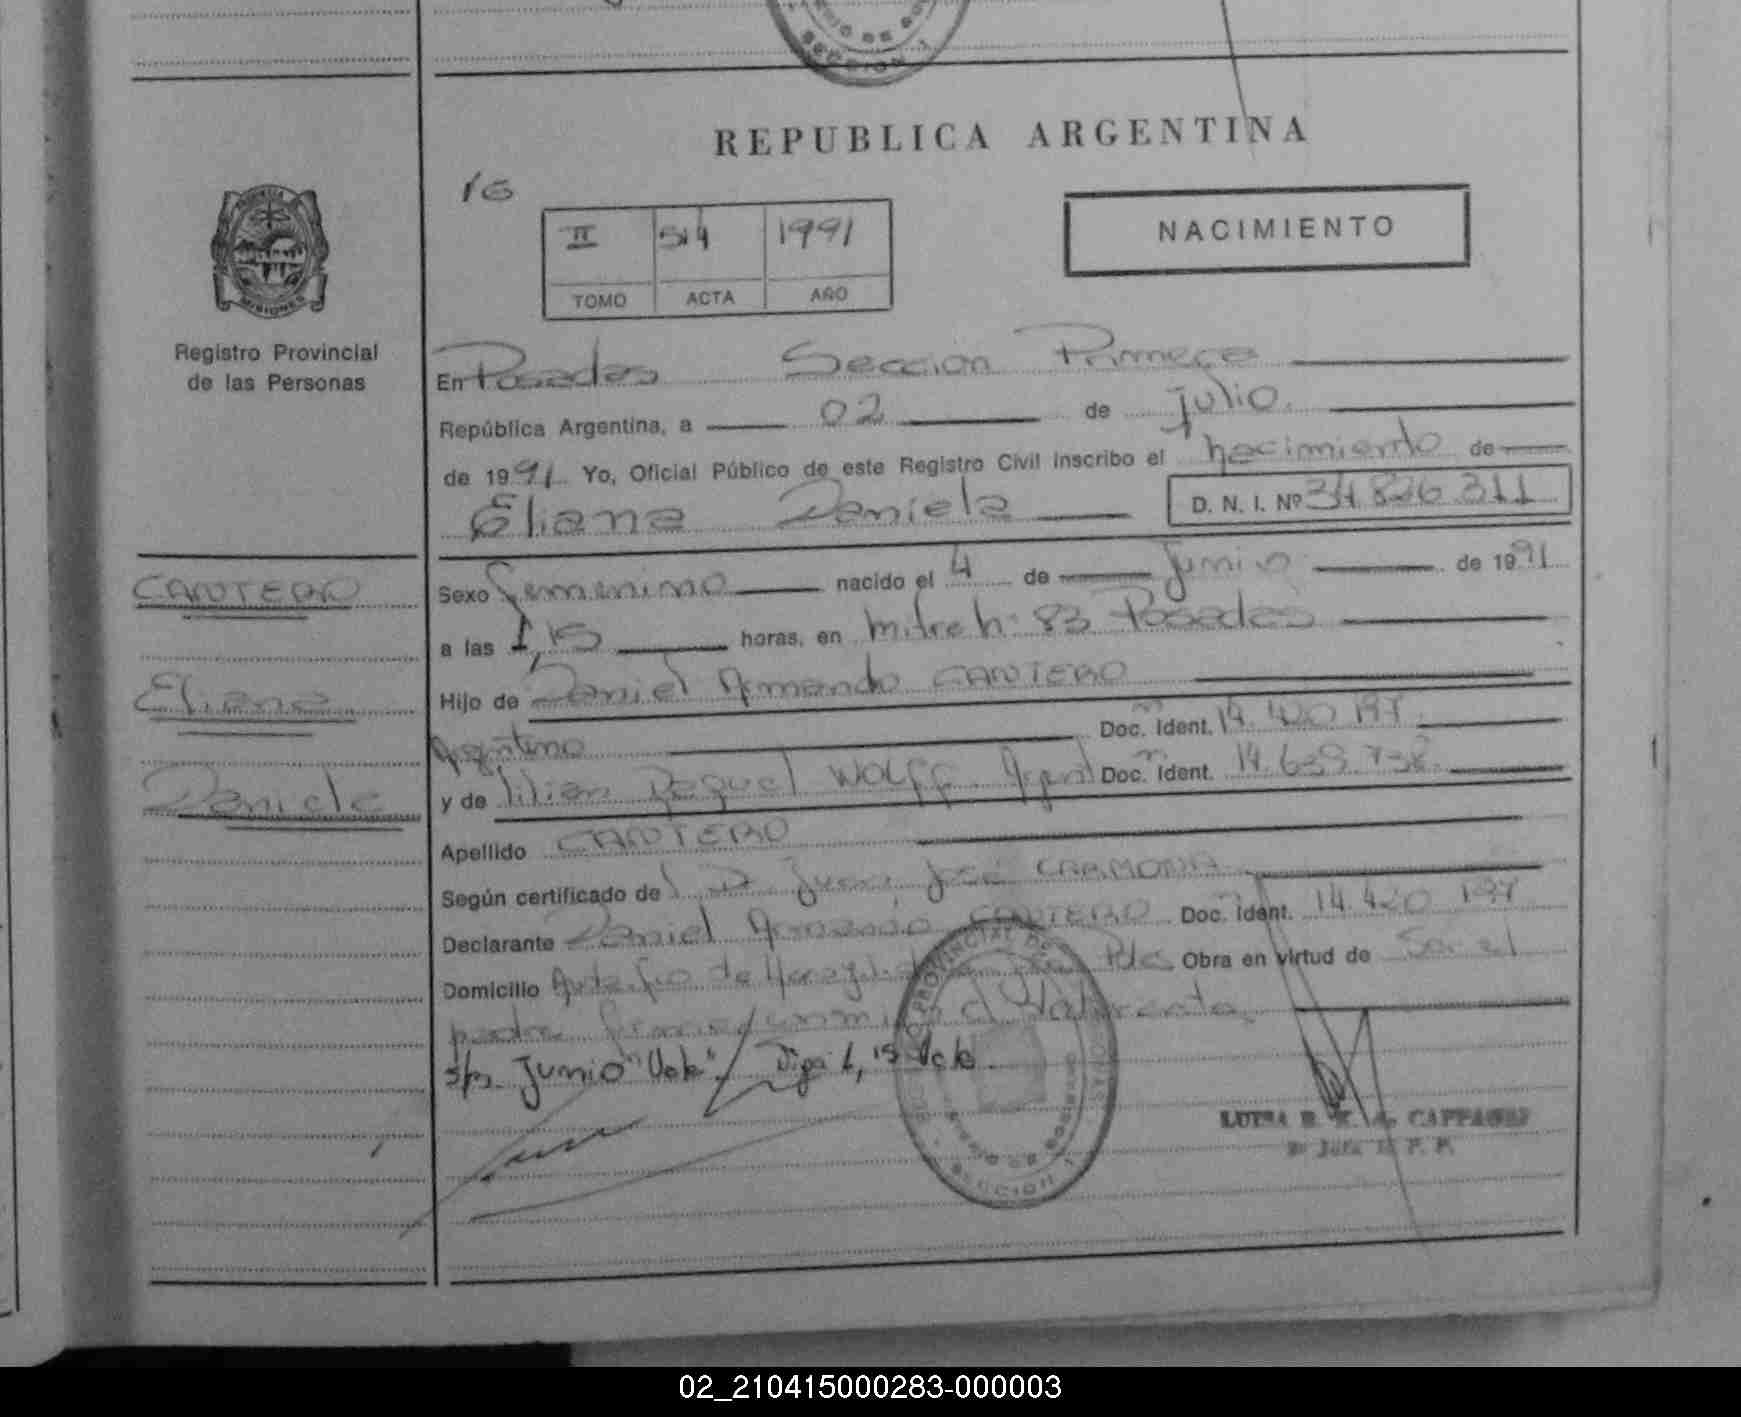 SECCION 1
REPUBLICA ARGENTINA
16
II 514 1991
TOMO ACTA AÑO
NACIMIENTO
PROVINCIA
MISIONES
Registro Provincial
de las Personas
En Posadas Sección Primera
República Argentina, a 02 de julio.
de 1991 Yo, Oficial Público de este Registro Civil inscribo el nacimiento de
Eliana Daniela D. N. I. Nº 34.826.311
CANTERO
Eliana
Daniela
Sexo femenino nacido el 4 de Junio de 1991
a las 1,15 horas, en Mitre h: 83 Posadas
Hijo de Daniel Armando CANTERO
Argentino Doc. Ident. m 14.420.197
y de Lilian Raquel WOLFF. Argent Doc. Ident. m 14.639.738
Apellido CANTERO
Según certificado de Juan José CARMONA
Declarante Daniel Armando CANTERO Doc. Ident. 14.420.197
Domicilio Pdas Obra en virtud de Ser el
padre
s/p. Junio "Vale". Diga 1,15 Vale.
SECCION 1
LUISA
02_210415000283-000003